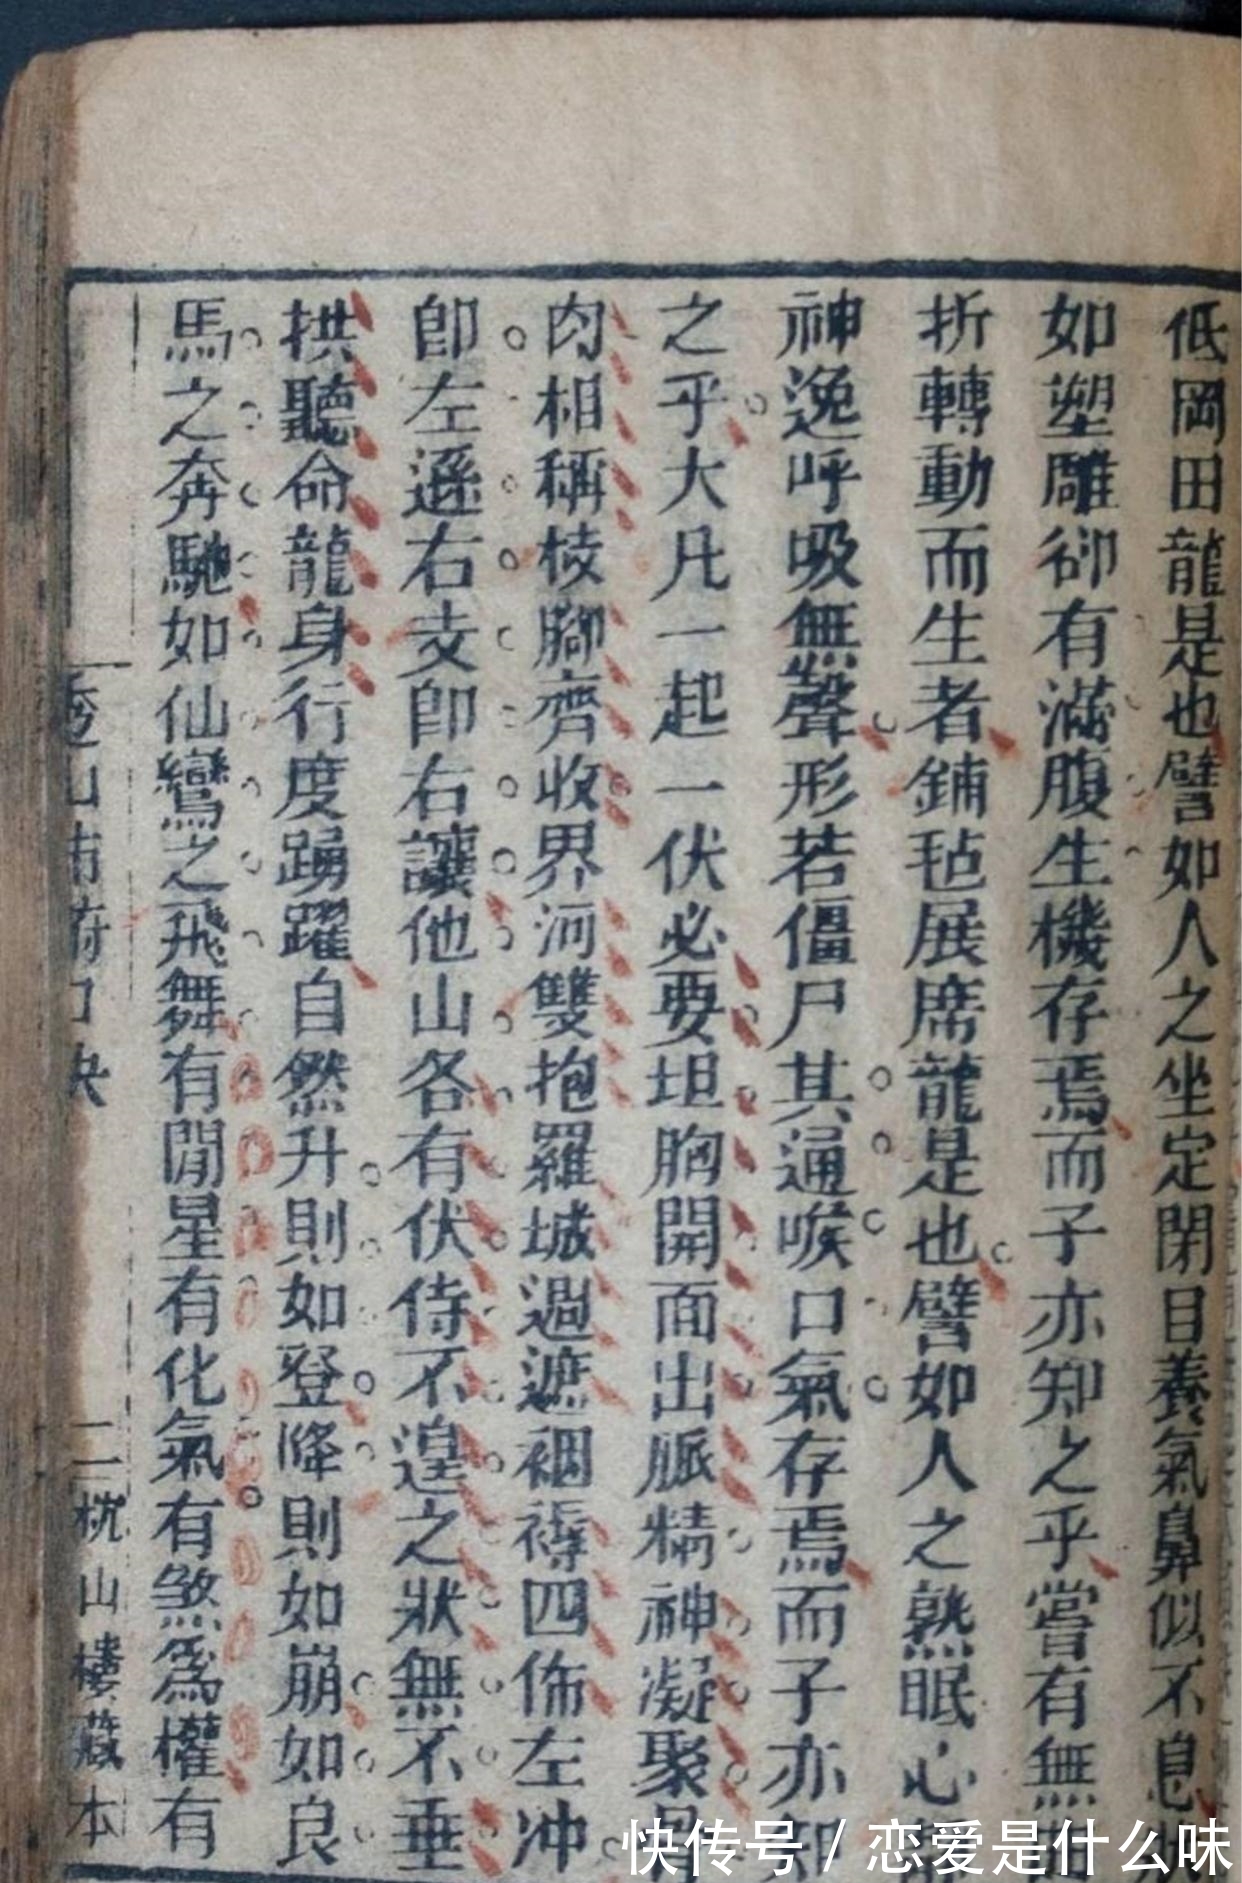 低岡田龍是也譬如人之坐定閉目養氣鼻似不息
如塑雕卻有滿腹生機存焉而子亦知之乎嘗有無
折轉動而生者鋪毡展席龍是也譬如人之熟眠心
神逸呼吸無聲形若僵尸其通喉口氣存焉而子亦知
之乎大凡一起一伏必要坦胸開面出脈精神凝聚
肉相稱棱腳齊收界河雙抱羅城過遮裀褥四佈左冲
卽左遜右支卽右讓他山各有伏侍不遑之狀無不垂
拱聽命龍身行度踴躍自然升則如登降則如崩如良
馬之奔馳如仙鸞之飛舞有閒星有化氣有煞爲權有
山 府口
二 枕山樓藏本
快传号 / 恋爱是什么味